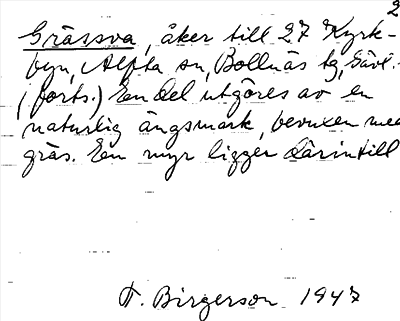 2
Grässva, åker till 27 Kyrk-
byn, Alfta sn, Bollnäs tg, Gävl.
(forts.) En del utgöres av en
naturlig ängsmark, bevuxen med
gräs. En myr ligger därintill
T. Birgerson 1947